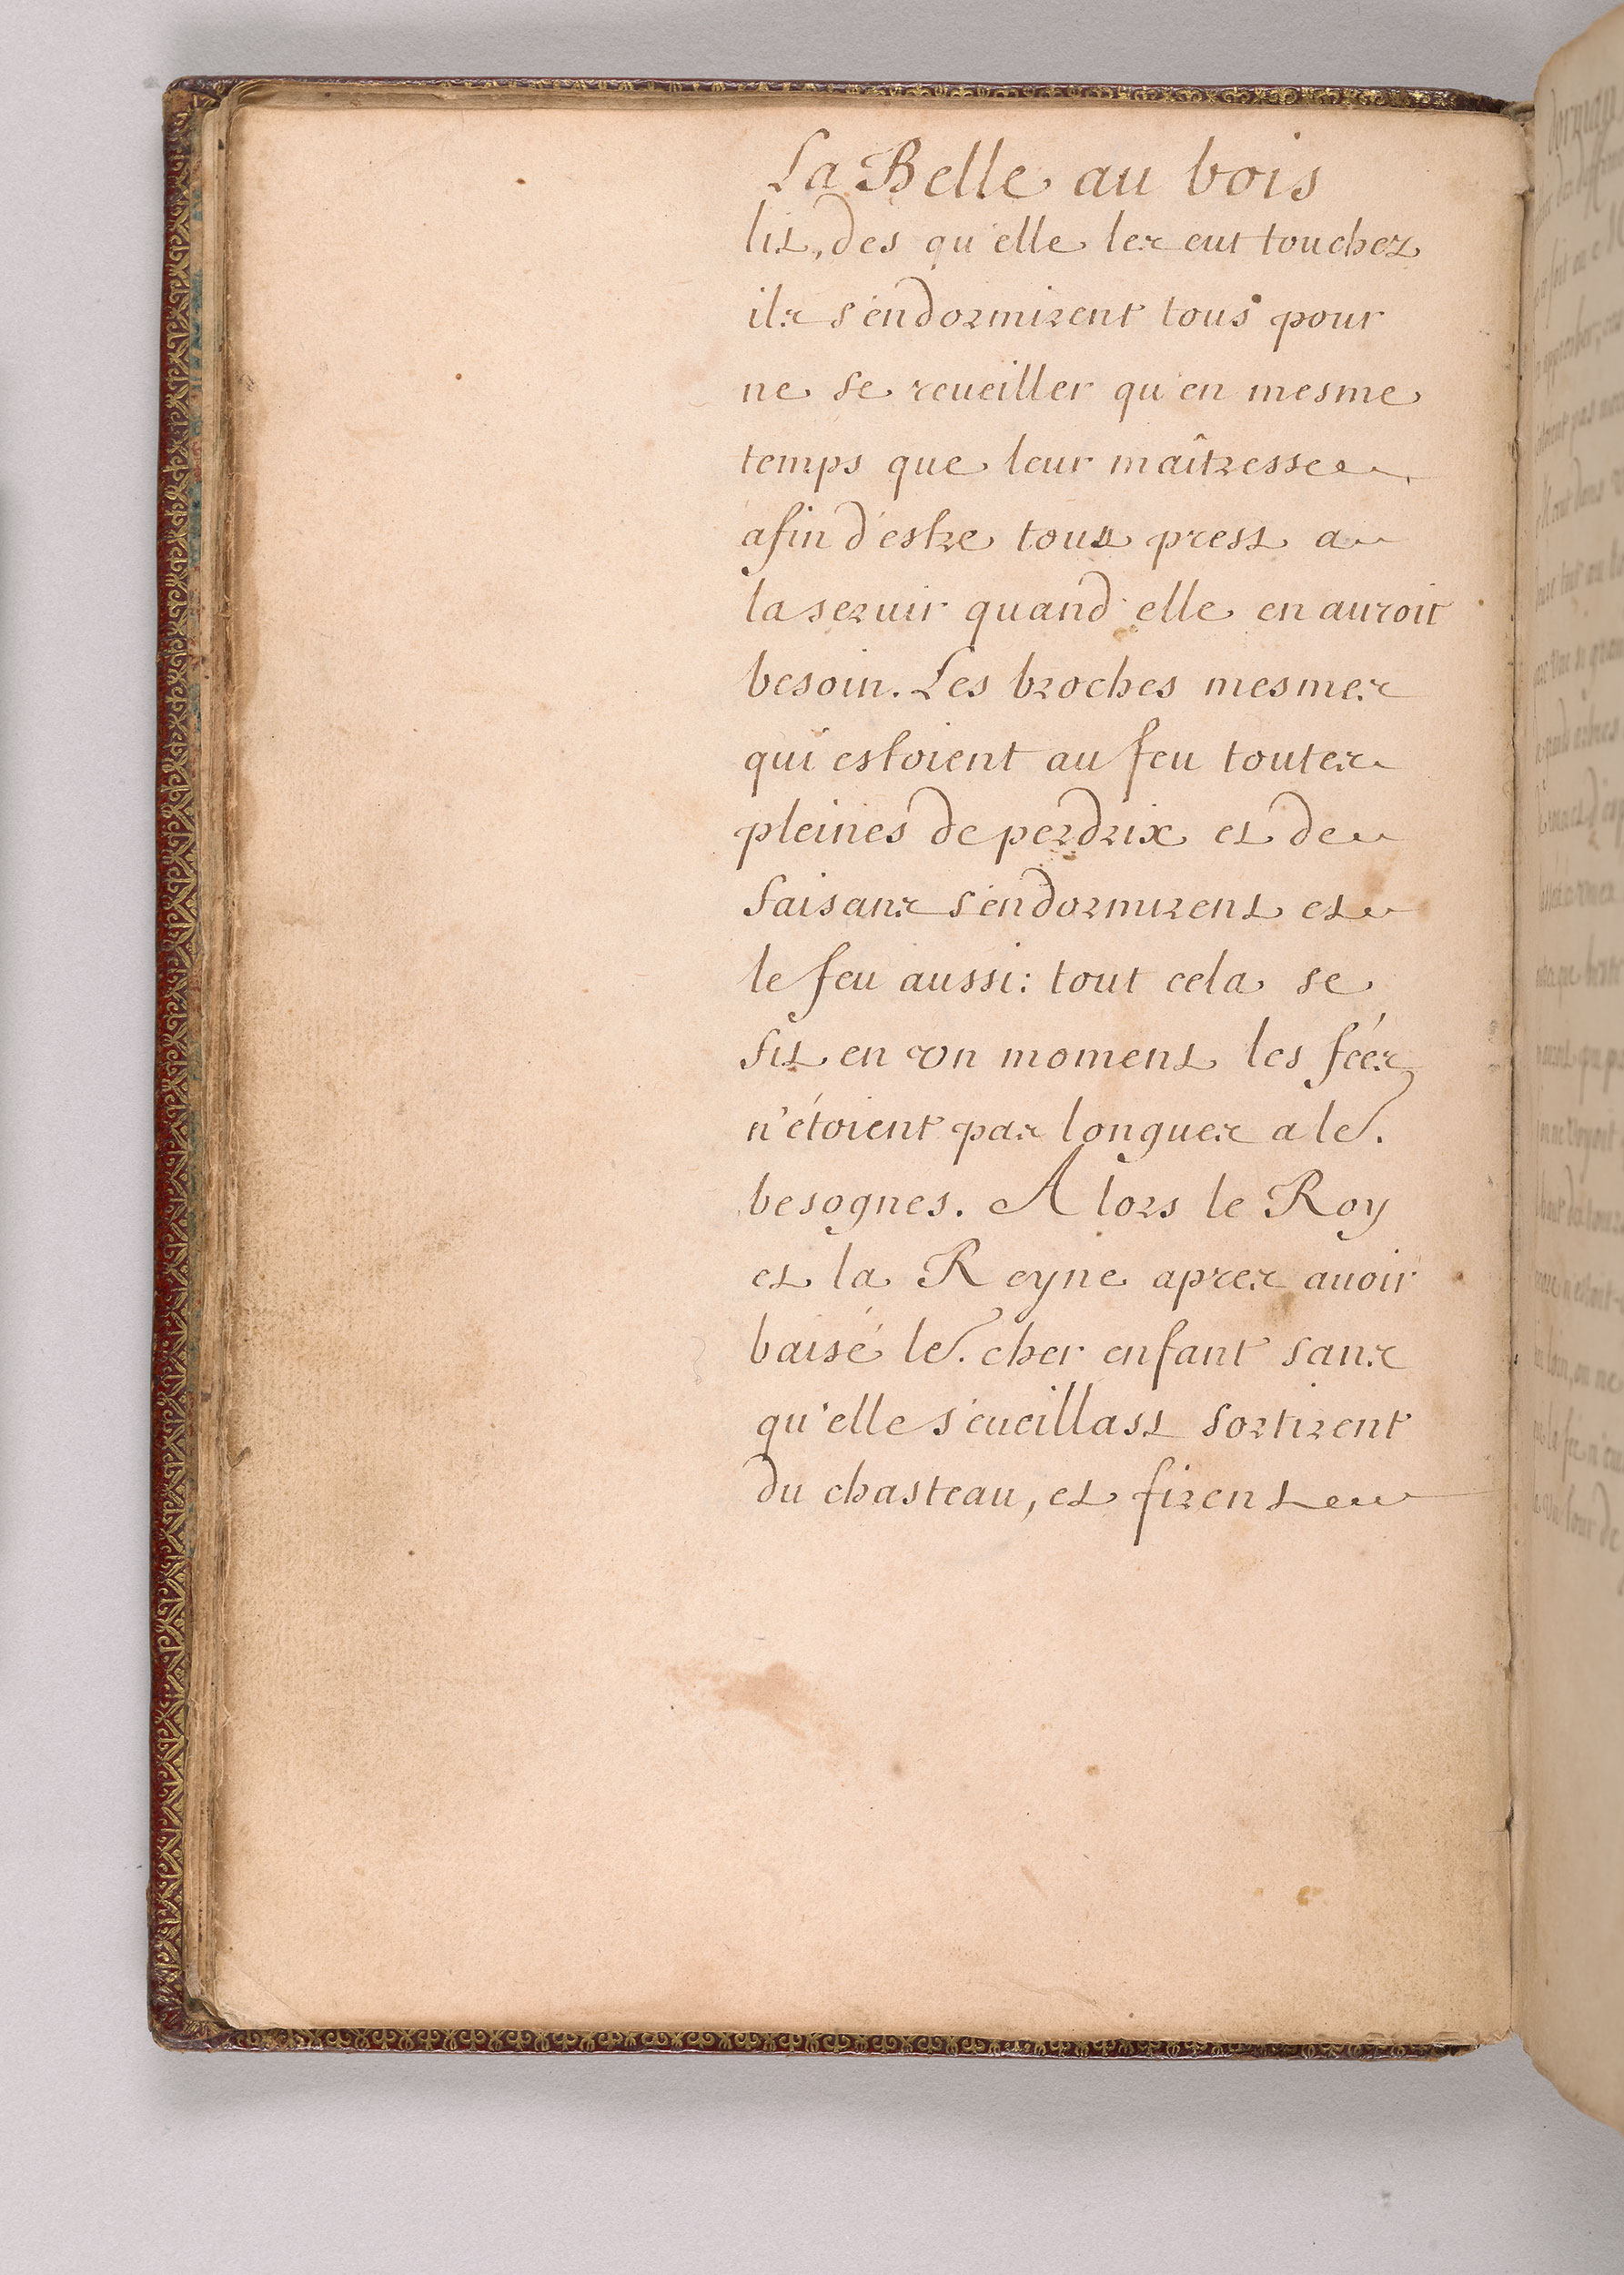 La Belle au bois
lit, des qu'elle les eut touchez
ils s'endormirent tous pour
ne se reueiller qu'en mesme
temps que leur maîtresse
afin d'estre tous prest a
la seruir quand elle en auroit
besoin. Les broches mesmes
qui estoient au feu toutes
pleines de perdrix et de
faisans s'endormirent et
le feu aussi: tout cela se
fit en vn moment les fées
n'étoient pas longues a le.
besognes. Alors le Roy
et la Reyne apres auoir
baisé le. cher enfant sans
qu'elle s'eueillast sortirent
du chasteau, et firent